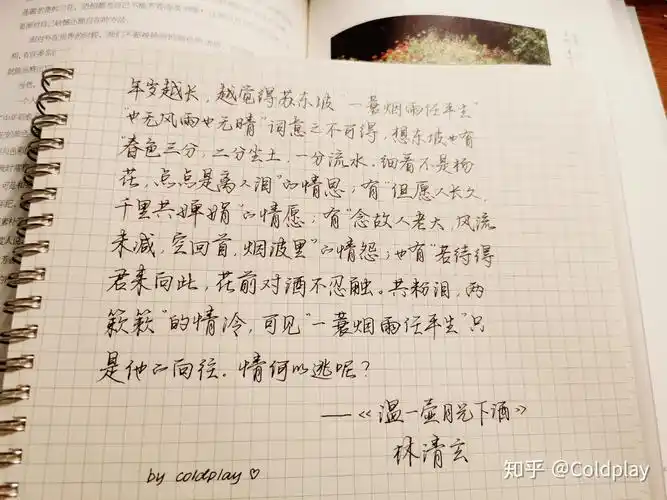 年岁越长，越觉得苏东坡“一蓑烟雨任平生”
“也无风雨也无晴”词意之不可得，想东坡也有
“春色三分，二分尘土，一分流水，细看不是杨
花，点点是离人泪”的情思；有“但愿人长久，
千里共婵娟”的情愿；有“念故人老大，风流
未减，空回首，烟波里”的情怨；也有“若待得
君来向此，花前对酒不忍触。共粉泪，两
簌簌”的情冷，可见“一蓑烟雨任平生”只
是他的向往。情何以逃呢？
——《温一壶月光下酒》
林清玄
by coldplay♡
知乎 @Coldplay